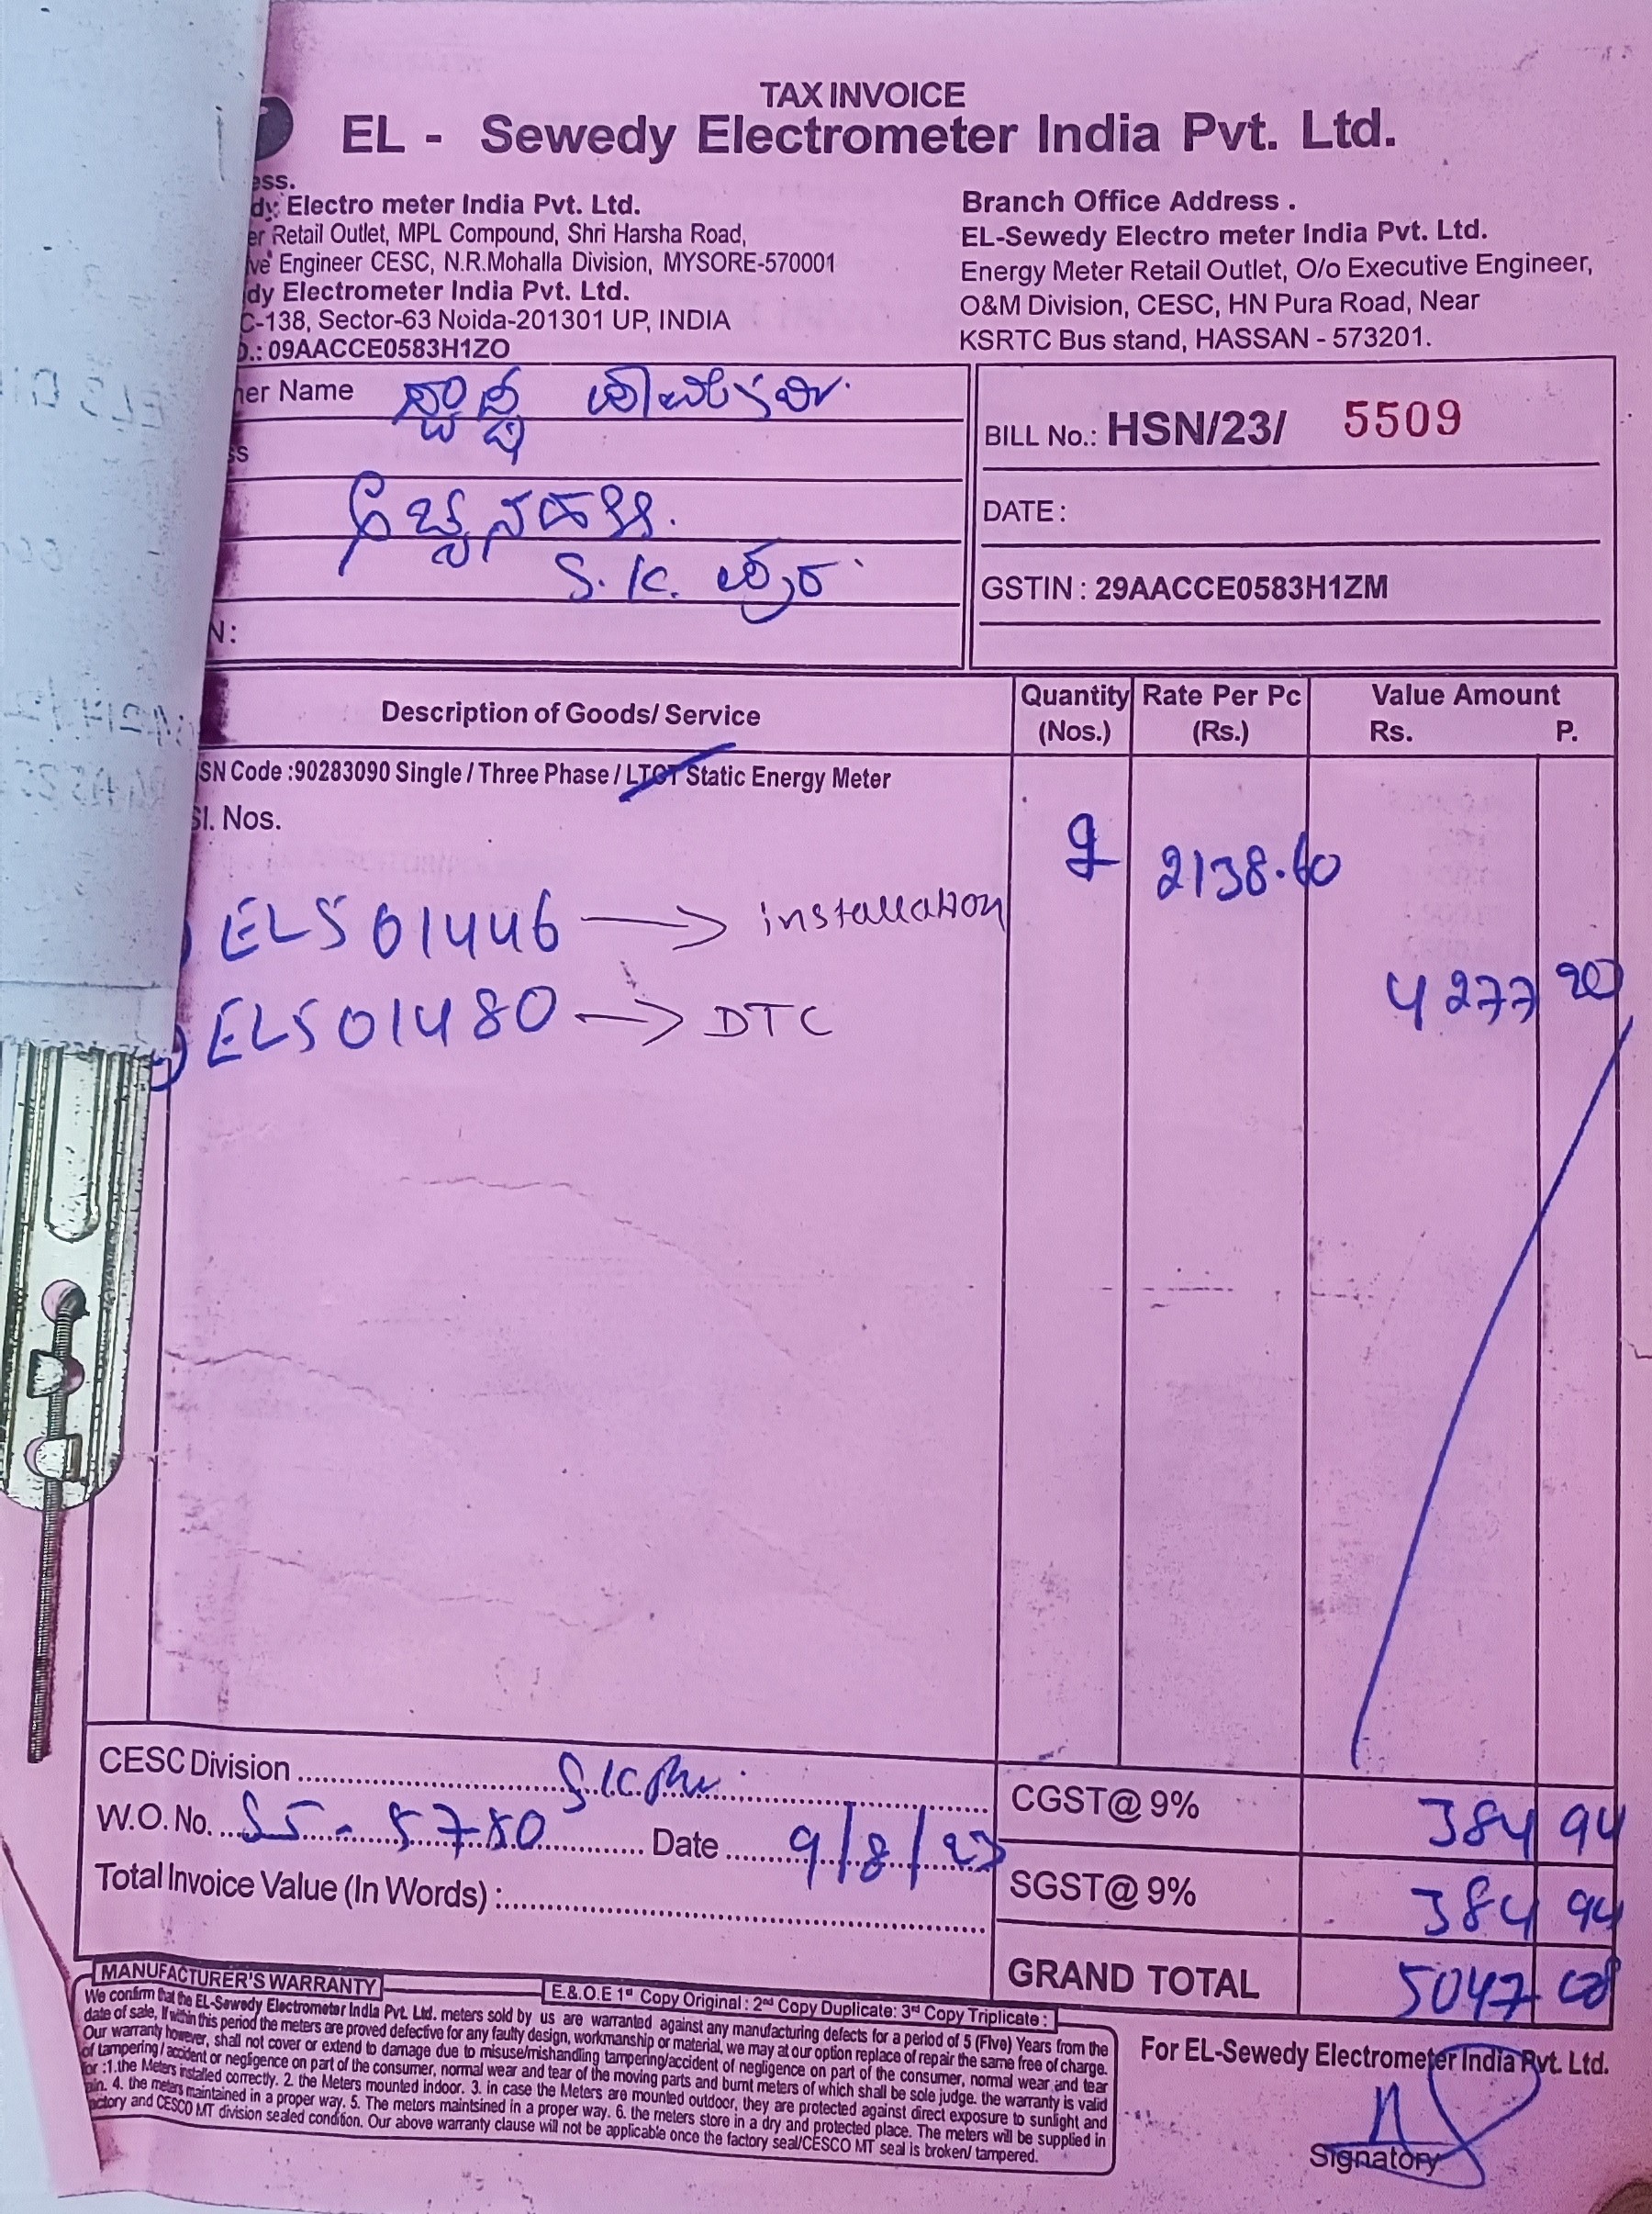 TAX INVOICE
EL - Sewedy Electrometer India Pvt. Ltd.
Electro meter India Pvt. Ltd.
Retail Outlet, MPL Compound, Shri Harsha Road,
Engineer CESC, N.R.Mohalla Division, MYSORE-570001
Electrometer India Pvt. Ltd.
C-138, Sector-63 Noida-201301 UP, INDIA
09AACCE0583H1ZO
Branch Office Address .
EL-Sewedy Electro meter India Pvt. Ltd.
Energy Meter Retail Outlet, O/o Executive Engineer,
O&M Division, CESC, HN Pura Road, Near
KSRTC Bus stand, HASSAN - 573201.
Name
S.K. ಪುರ
BILL No.: HSN/23/ 5509
DATE :
GSTIN : 29AACCE0583H1ZM
Description of Goods/ Service
Quantity (Nos.)
Rate Per Pc (Rs.)
Value Amount
Rs. P.
SN Code :90283090 Single / Three Phase / LTCT Static Energy Meter
Sl. Nos.
2 2138.60
ELS01446 → installation
4277 20
ELS01480 → DTC
CESC Division
W.O. No. SS - 5780 Date 9/8/23
Total Invoice Value (In Words) :
CGST@ 9% 384 94
SGST@ 9% 384 94
GRAND TOTAL 5047 08
MANUFACTURER'S WARRANTY
E.& O.E 1st Copy Original : 2nd Copy Duplicate: 3rd Copy Triplicate :
We confirm that the EL-Sewedy Electrometer India Pvt. Ltd. meters sold by us are warranted against any manufacturing defects for a period of 5 (Five) Years from the
date of sale, If within this period the meters are proved defective for any faulty design, workmanship or material, we may at our option replace of repair the same free of charge.
Our warranty however, shall not cover or extend to damage due to misuse/mishandling tampering/accident of negligence on part of the consumer, normal wear and tear
of tampering / accident or negligence on part of the consumer, normal wear and tear of the moving parts and burnt meters of which shall be sole judge. the warranty is valid
for :1.the Meters installed correctly. 2. the Meters mounted Indoor. 3. in case the Meters are mounted outdoor, they are protected against direct exposure to sunlight and
4. the meters maintained in a proper way. 5. The meters maintsined in a proper way. 6. the meters store in a dry and protected place. The meters will be supplied in
factory and CESCO MT division sealed condition. Our above warranty clause will not be applicable once the factory seal/CESCO MT seal is broken/ tampered.
For EL-Sewedy Electrometer India Pvt. Ltd.
Signatory